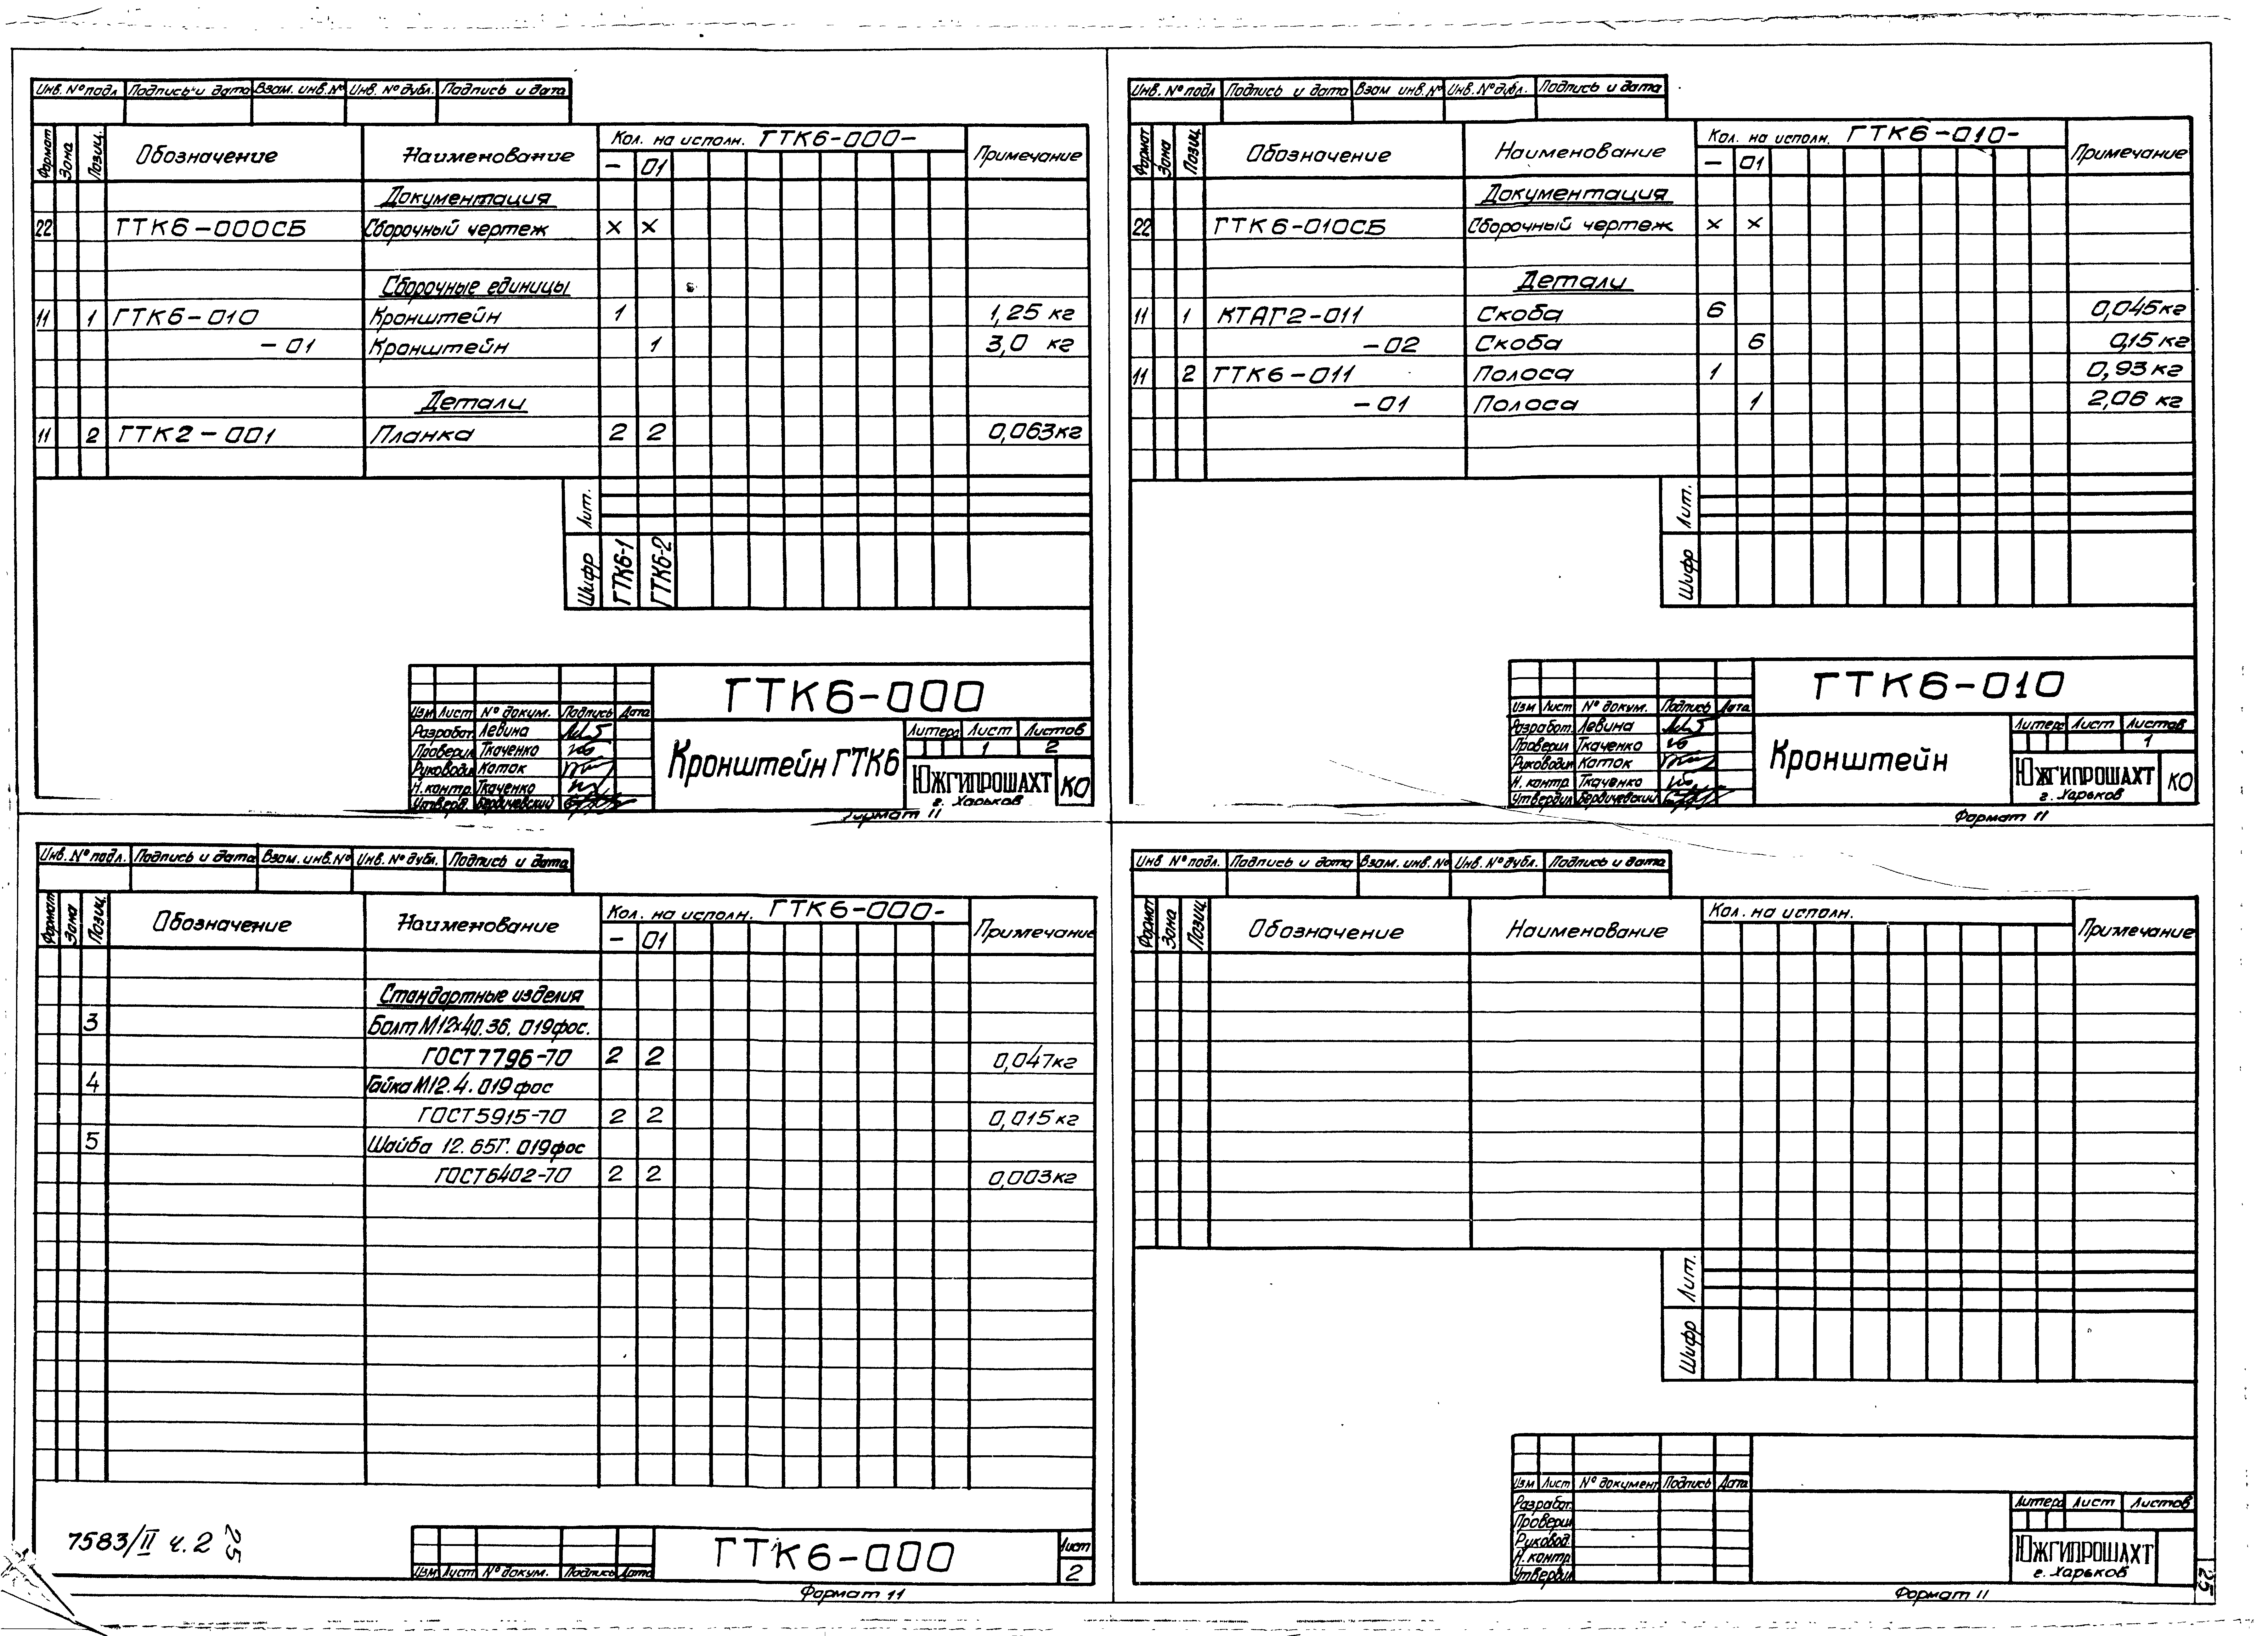 Инв. № подл Подпись и дата Взам. инв. № Инв. № дубл. Подпись и дата
Формат Зона Позиц. Обозначение Наименование Кол. на исполн. ГТК6-000- Примечание
- 01
Документация
22 ГТК6-000СБ Сборочный чертеж × ×
Сборочные единицы
11 1 ГТК6-010 Кронштейн 1 1,25 кг
-01 Кронштейн 1 3,0 кг
Детали
11 2 ГТК2-001 Планка 2 2 0,063кг
Лит.
Шифр ГТК6-1 ГТК6-2
ГТК6-000
Изм Лист № докум. Подпись Дата
Разработ. Левина
Проверил Ткаченко
Руководил Каток
Н. контр. Ткаченко
Утверд. Бердичевский
Кронштейн ГТК6
Литера Лист Листов
1 2
ЮЖГИПРОШАХТ КО
г. Харьков
Формат 11
Инв. № подл Подпись и дата Взам инв. № Инв. № дубл. Подпись и дата
Формат Зона Позиц Обозначение Наименование Кол. на исполн. ГТК6-010- Примечание
- 01
Документация
22 ГТК6-010СБ Сборочный чертеж × ×
Детали
11 1 КТАГ2-011 Скоба 6 0,045кг
-02 Скоба 6 0,15 кг
11 2 ГТК6-011 Полоса 1 0,93 кг
-01 Полоса 1 2,06 кг
Лит.
Шифр
ГТК6-010
Изм Лист № докум. Подпись Дата
Разработ. Левина
Проверил Ткаченко
Руководил Каток
Н. контр Ткаченко
Утвердил Бердичевский
Кронштейн
Литера Лист Листов
1
ЮЖГИПРОШАХТ КО
г. Харьков
Формат 11
Инв. № подл. Подпись и дата Взам. инв. № Инв. № дубл. Подпись и дата
Формат Зона Позиц. Обозначение Наименование Кол. на исполн. ГТК6-000- Примечание
- 01
Стандартные изделия
3 Болт М12х40.36.019фос.
ГОСТ7796-70 2 2 0,047кг
4 Гайка М12.4.019фос
ГОСТ5915-70 2 2 0,015кг
5 Шайба 12.65Г.019фос
ГОСТ6402-70 2 2 0,003кг
7583/II ч.2 25
Изм Лист № докум. Подпись Дата
ГТК6-000
Лист
2
Формат 11
Инв № подл. Подпись и дата Взам. инв. № Инв. № дубл. Подпись и дата
Формат Зона Позиц Обозначение Наименование Кол. на исполн. Примечание
Лит.
Шифр
Изм Лист № документ Подпись Дата
Разработ.
Проверил
Руковод.
Н. контр
Утвердил
Литера Лист Листов
ЮЖГИПРОШАХТ
г. Харьков
Формат 11
25